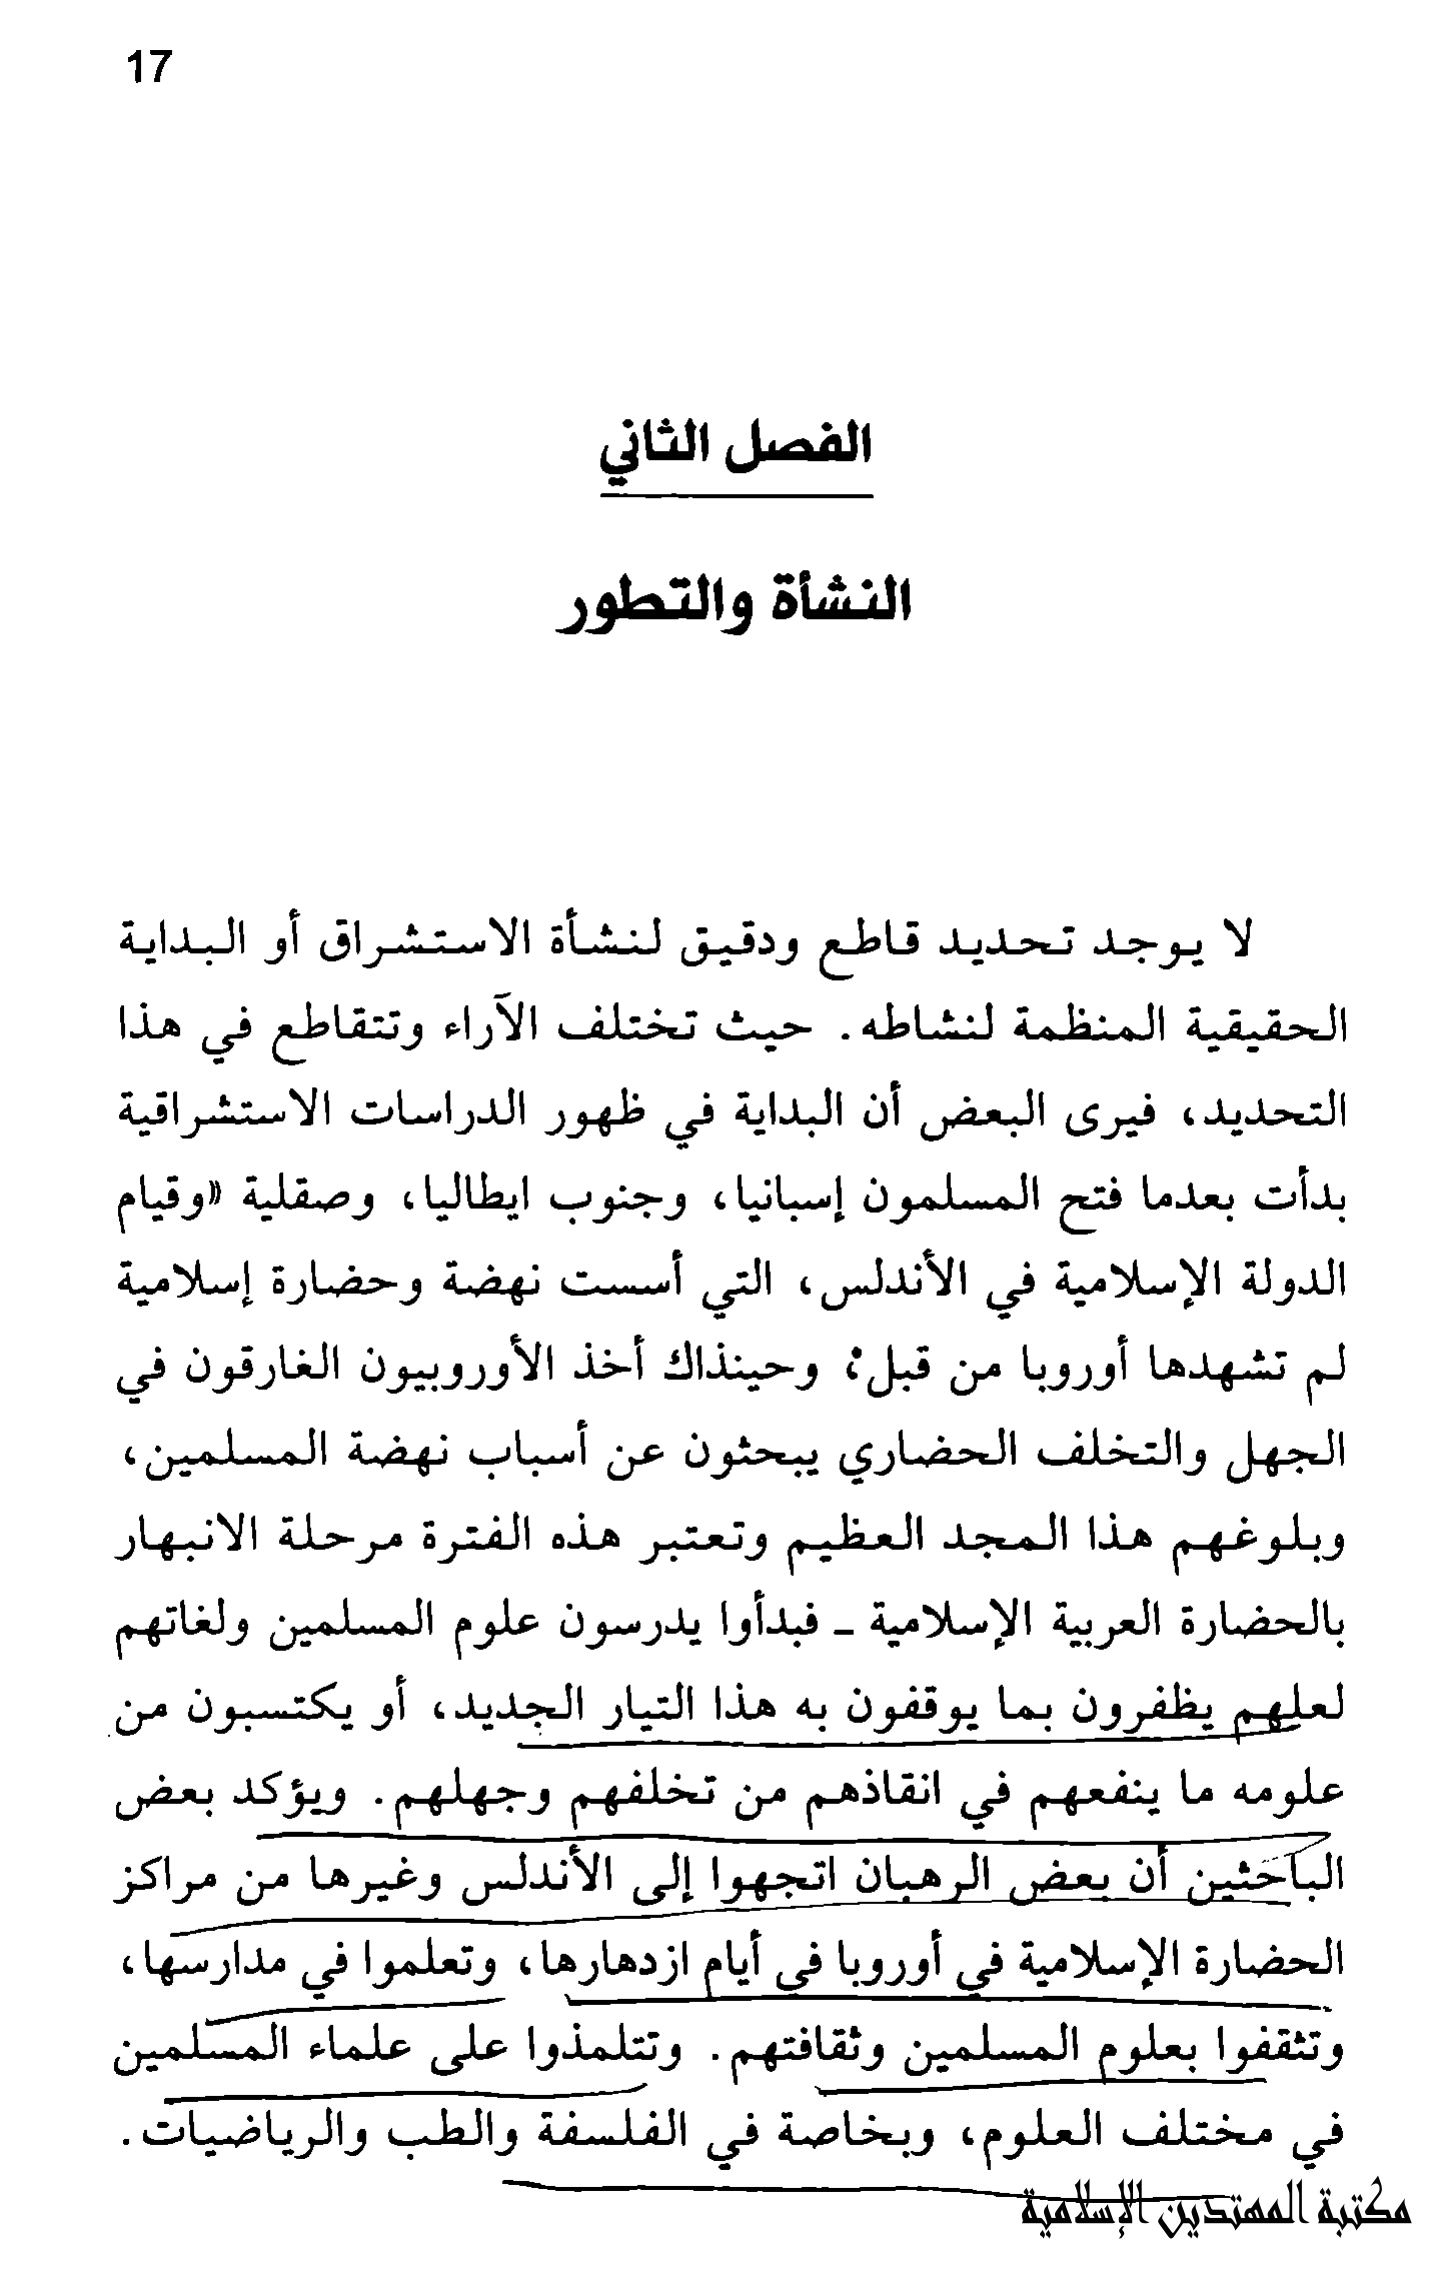 17
الفصل الثاني
النشأة والتطور
لا يوجد تحديد قاطع ودقيق لنشأة الاستشراق أو البداية
الحقيقية المنظمة لنشاطه. حيث تختلف الآراء وتتقاطع في هذا
التحديد، فيرى البعض أن البداية في ظهور الدراسات الاستشراقية
بدأت بعدما فتح المسلمون إسبانيا، وجنوب ايطاليا، وصقلية «وقيام
الدولة الإسلامية في الأندلس، التي أسست نهضة وحضارة إسلامية
لم تشهدها أوروبا من قبل؛ وحينذاك أخذ الأوروبيون الغارقون في
الجهل والتخلف الحضاري يبحثون عن أسباب نهضة المسلمين،
وبلوغهم هذا المجد العظيم وتعتبر هذه الفترة مرحلة الانبهار
بالحضارة العربية الإسلامية ـ فبدأوا يدرسون علوم المسلمين ولغاتهم
لعلهم يظفرون بما يوقفون به هذا التيار الجديد، أو يكتسبون من
علومه ما ينفعهم في انقاذهم من تخلفهم وجهلهم. ويؤكد بعض
الباحثين أن بعض الرهبان اتجهوا إلى الأندلس وغيرها من مراكز
الحضارة الإسلامية في أوروبا في أيام ازدهارها، وتعلموا في مدارسها،
وتثقفوا بعلوم المسلمين وثقافتهم. وتتلمذوا على علماء المسلمين
في مختلف العلوم، وبخاصة في الفلسفة والطب والرياضيات.
مكتبة المهتدين الإسلامية